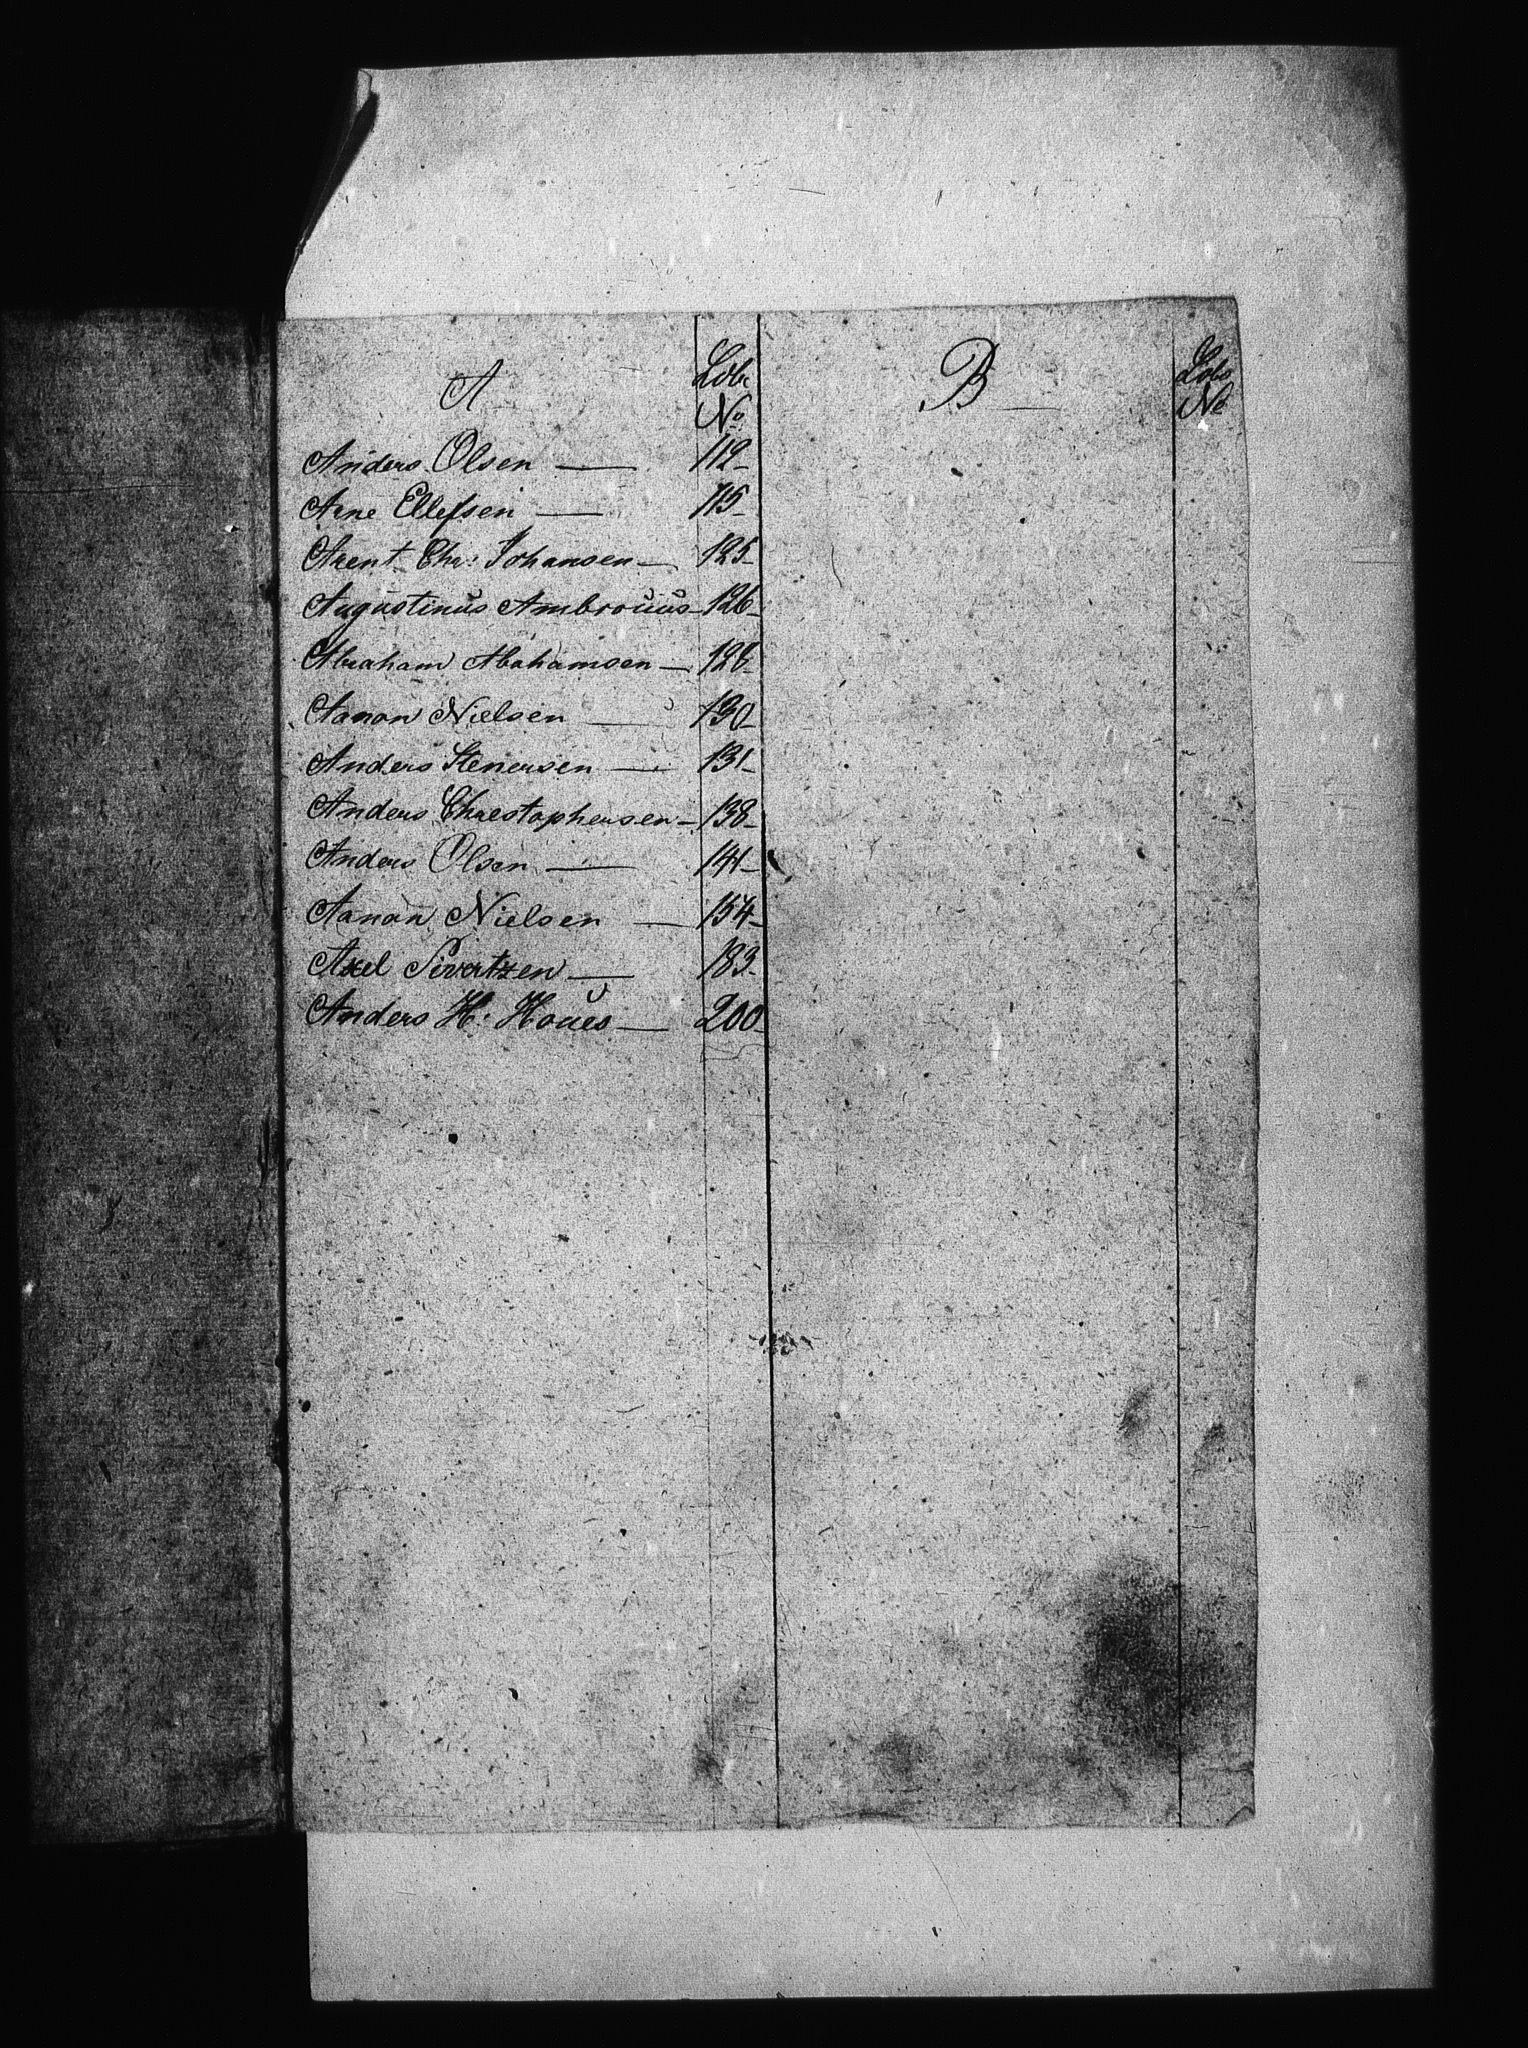 A Løb. No
Anders Olsen — 112
Arne Ellefsen — 115
Arent Chr: Johansen — 125
Augustinus Ambrosius 126
Abraham Abahamsen — 128
Aanon Nielsen — 130
Anders Stenersen — 131
Anders Chrestophersen — 138
Anders Olsen — 141
Aanon Nielsen — 154
Axel Sivertzen — 183
Anders H. Houes — 200
B — Løb No